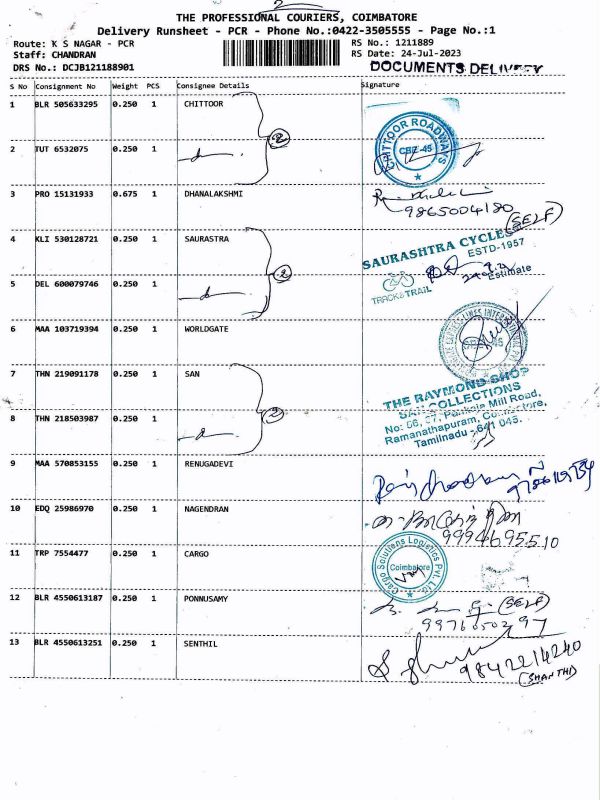 2
THE PROFESSIONAL COURIERS, COIMBATORE
Delivery Runsheet - PCR - Phone No.:0422-3505555 - Page No.:1
Route: K S NAGAR - PCR
RS No.: 1211889
Staff: CHANDRAN
RS Date: 24-Jul-2023
DRS No.: DCJB121188901
DOCUMENTS DELIVERY
S No Consignment No Weight PCS Consignee Details Signature
1 BLR 505633295 0.250 1 CHITTOOR
CHITTOOR ROADWAYS
CBE-45
2 TUT 6532075 0.250 1
2
3 PRO 15131933 0.675 1 DHANALAKSHMI
9865004180
(SELF)
4 KLI 530128721 0.250 1 SAURASTRA
SAURASHTRA CYCLES
ESTD-1957
Estimate
TRACK & TRAIL
5 DEL 600079746 0.250 1
2
6 MAA 103719394 0.250 1 WORLDGATE
7 THN 219091178 0.250 1 SAN
THE RAYMOND SHOP
SAN COLLECTIONS
Mill Road,
Ramanathapuram, Coimbatore,
Tamilnadu - 641 045.
8 THN 218503987 0.250 1
2
9 MAA 570853155 0.250 1 RENUGADEVI
10 EDQ 25986970 0.250 1 NAGENDRAN
9994695510
11 TRP 7554477 0.250 1 CARGO
Cargo Solutions Logistics Pvt. Ltd.
Coimbatore
12 BLR 4550613187 0.250 1 PONNUSAMY
(SELF)
13 BLR 4550613251 0.250 1 SENTHIL
9842214240
(SHANTHI)